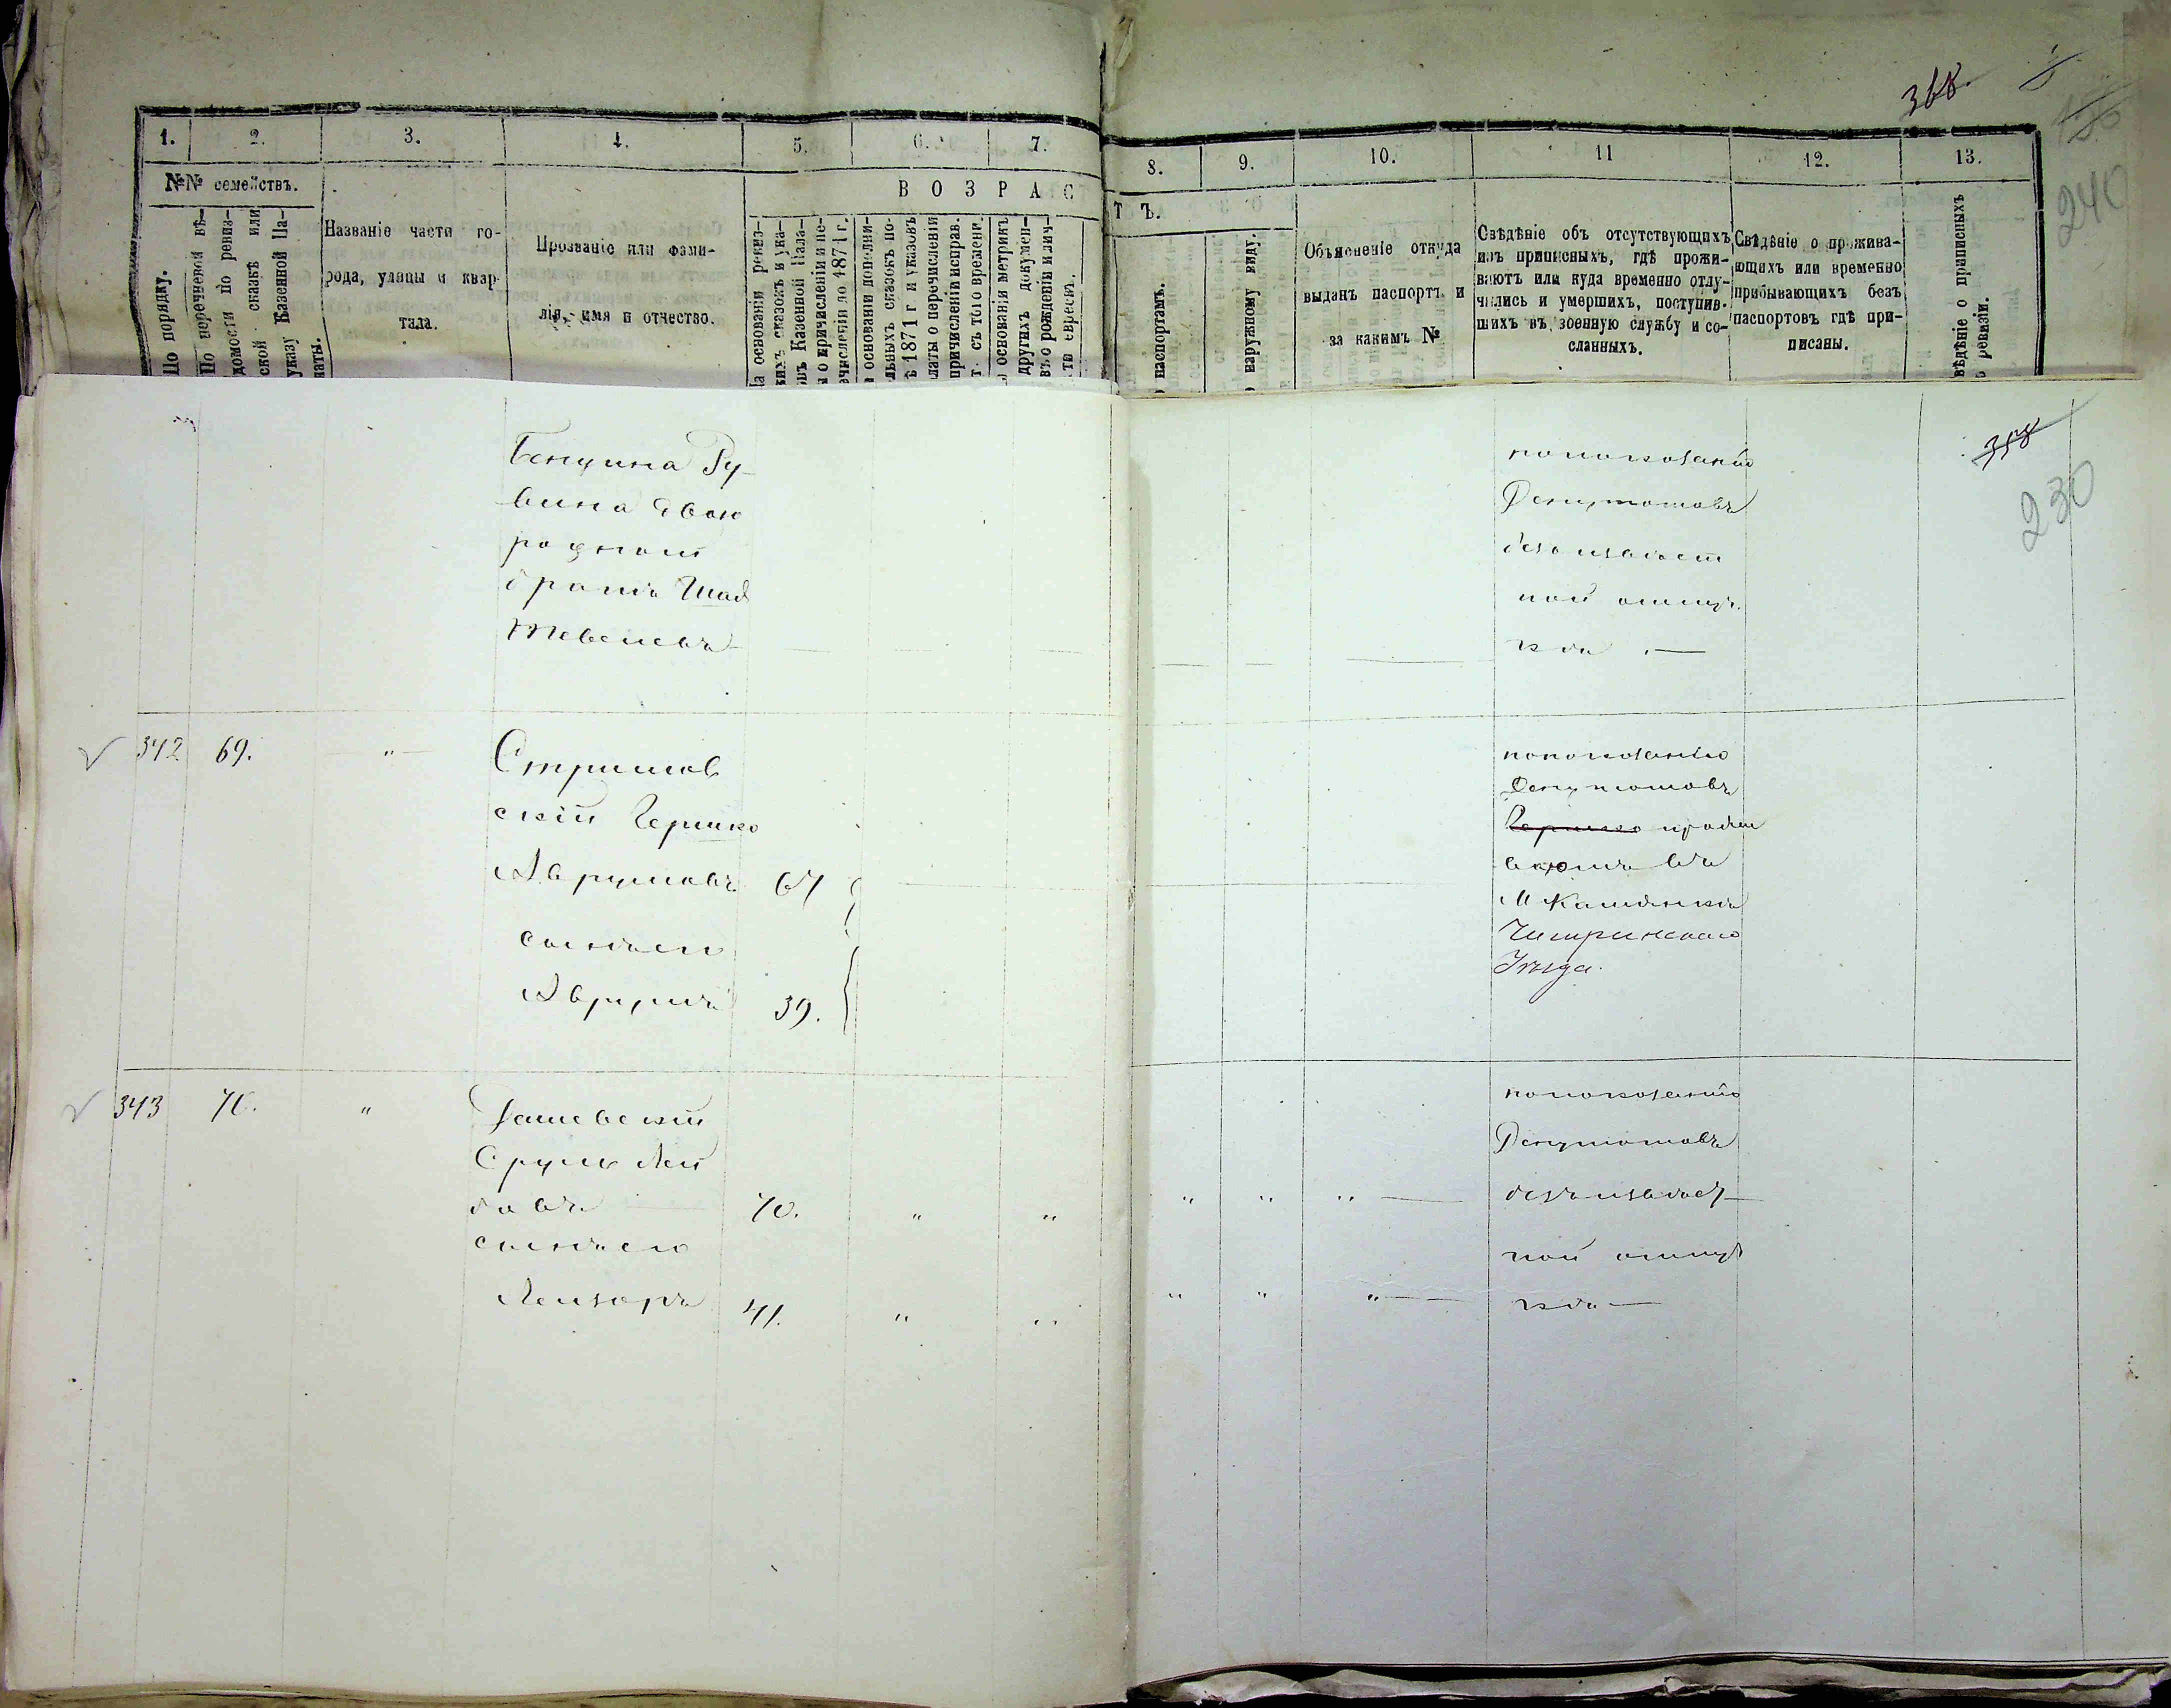 368.
240
1.
2.
3.
4.
5.
6.
7.
8.
9.
10.
11
12.
13.
№№ семействъ.
ВОЗРАС
ТЪ.
По порядку.
По перечневой вѣ-
домости по ревиз-
ской сказкѣ или
указу Казенной Па-
латы.
Названіе части го-
рода, улицы и квар-
тала.
Прозваніе или фами-
лія, имя и отчество.
а основаніи ревиз-
кихъ сказокъ и ука-
овъ Казенной Пала-
ы о причисленіи и пе-
ечисленіи до 1874 г.
основаніи дополни-
льныхъ сказокъ по-
ѣ 1871 г и указовъ
латы о перечисленіи
причисленіи исправ.
г. съ того времени.
о основаніи метрикъ
других докумен-
въ о рожденіи или ч-
ств евреевъ.
о паспортамъ.
о наружному виду.
Объясненіе откуда
выданъ паспортъ и
за какимъ №
Свѣдѣніе объ отсутствующихъ
изъ приписныхъ, гдѣ прожи-
ваютъ или куда временно отлу-
чились и умершихъ, поступив-
шихъ въ военную службу и со-
сланныхъ.
Свѣдѣніе о прожива-
ющихъ или временно
прибывающихъ безъ
паспортовъ гдѣ при-
писаны.
вѣдѣніе о приписныхъ
о ревизіи.
358
230
Бенциона Ру-
вина двою
родной
братъ
Тевелевъ
по показанію
Депутатовъ
безъизвѣст
ной отлуч.
кѣ
342 69. "
Стримов
скій Гершко
Аврумовъ 67
сынъ его
Аврумъ 39.
по показанію
Депутатовъ
Гершко прожи
ваютъ въ
М Каменкѣ
Чигринскаго
Уѣзда.
343 70. "
Рашевскій
Сруль Лей
бовъ 70. " "
сынъ его
Лейзеръ 41. " "
по показанію
Депутатовъ
" " " безъизвѣст
ной отлуч
" " " кѣ